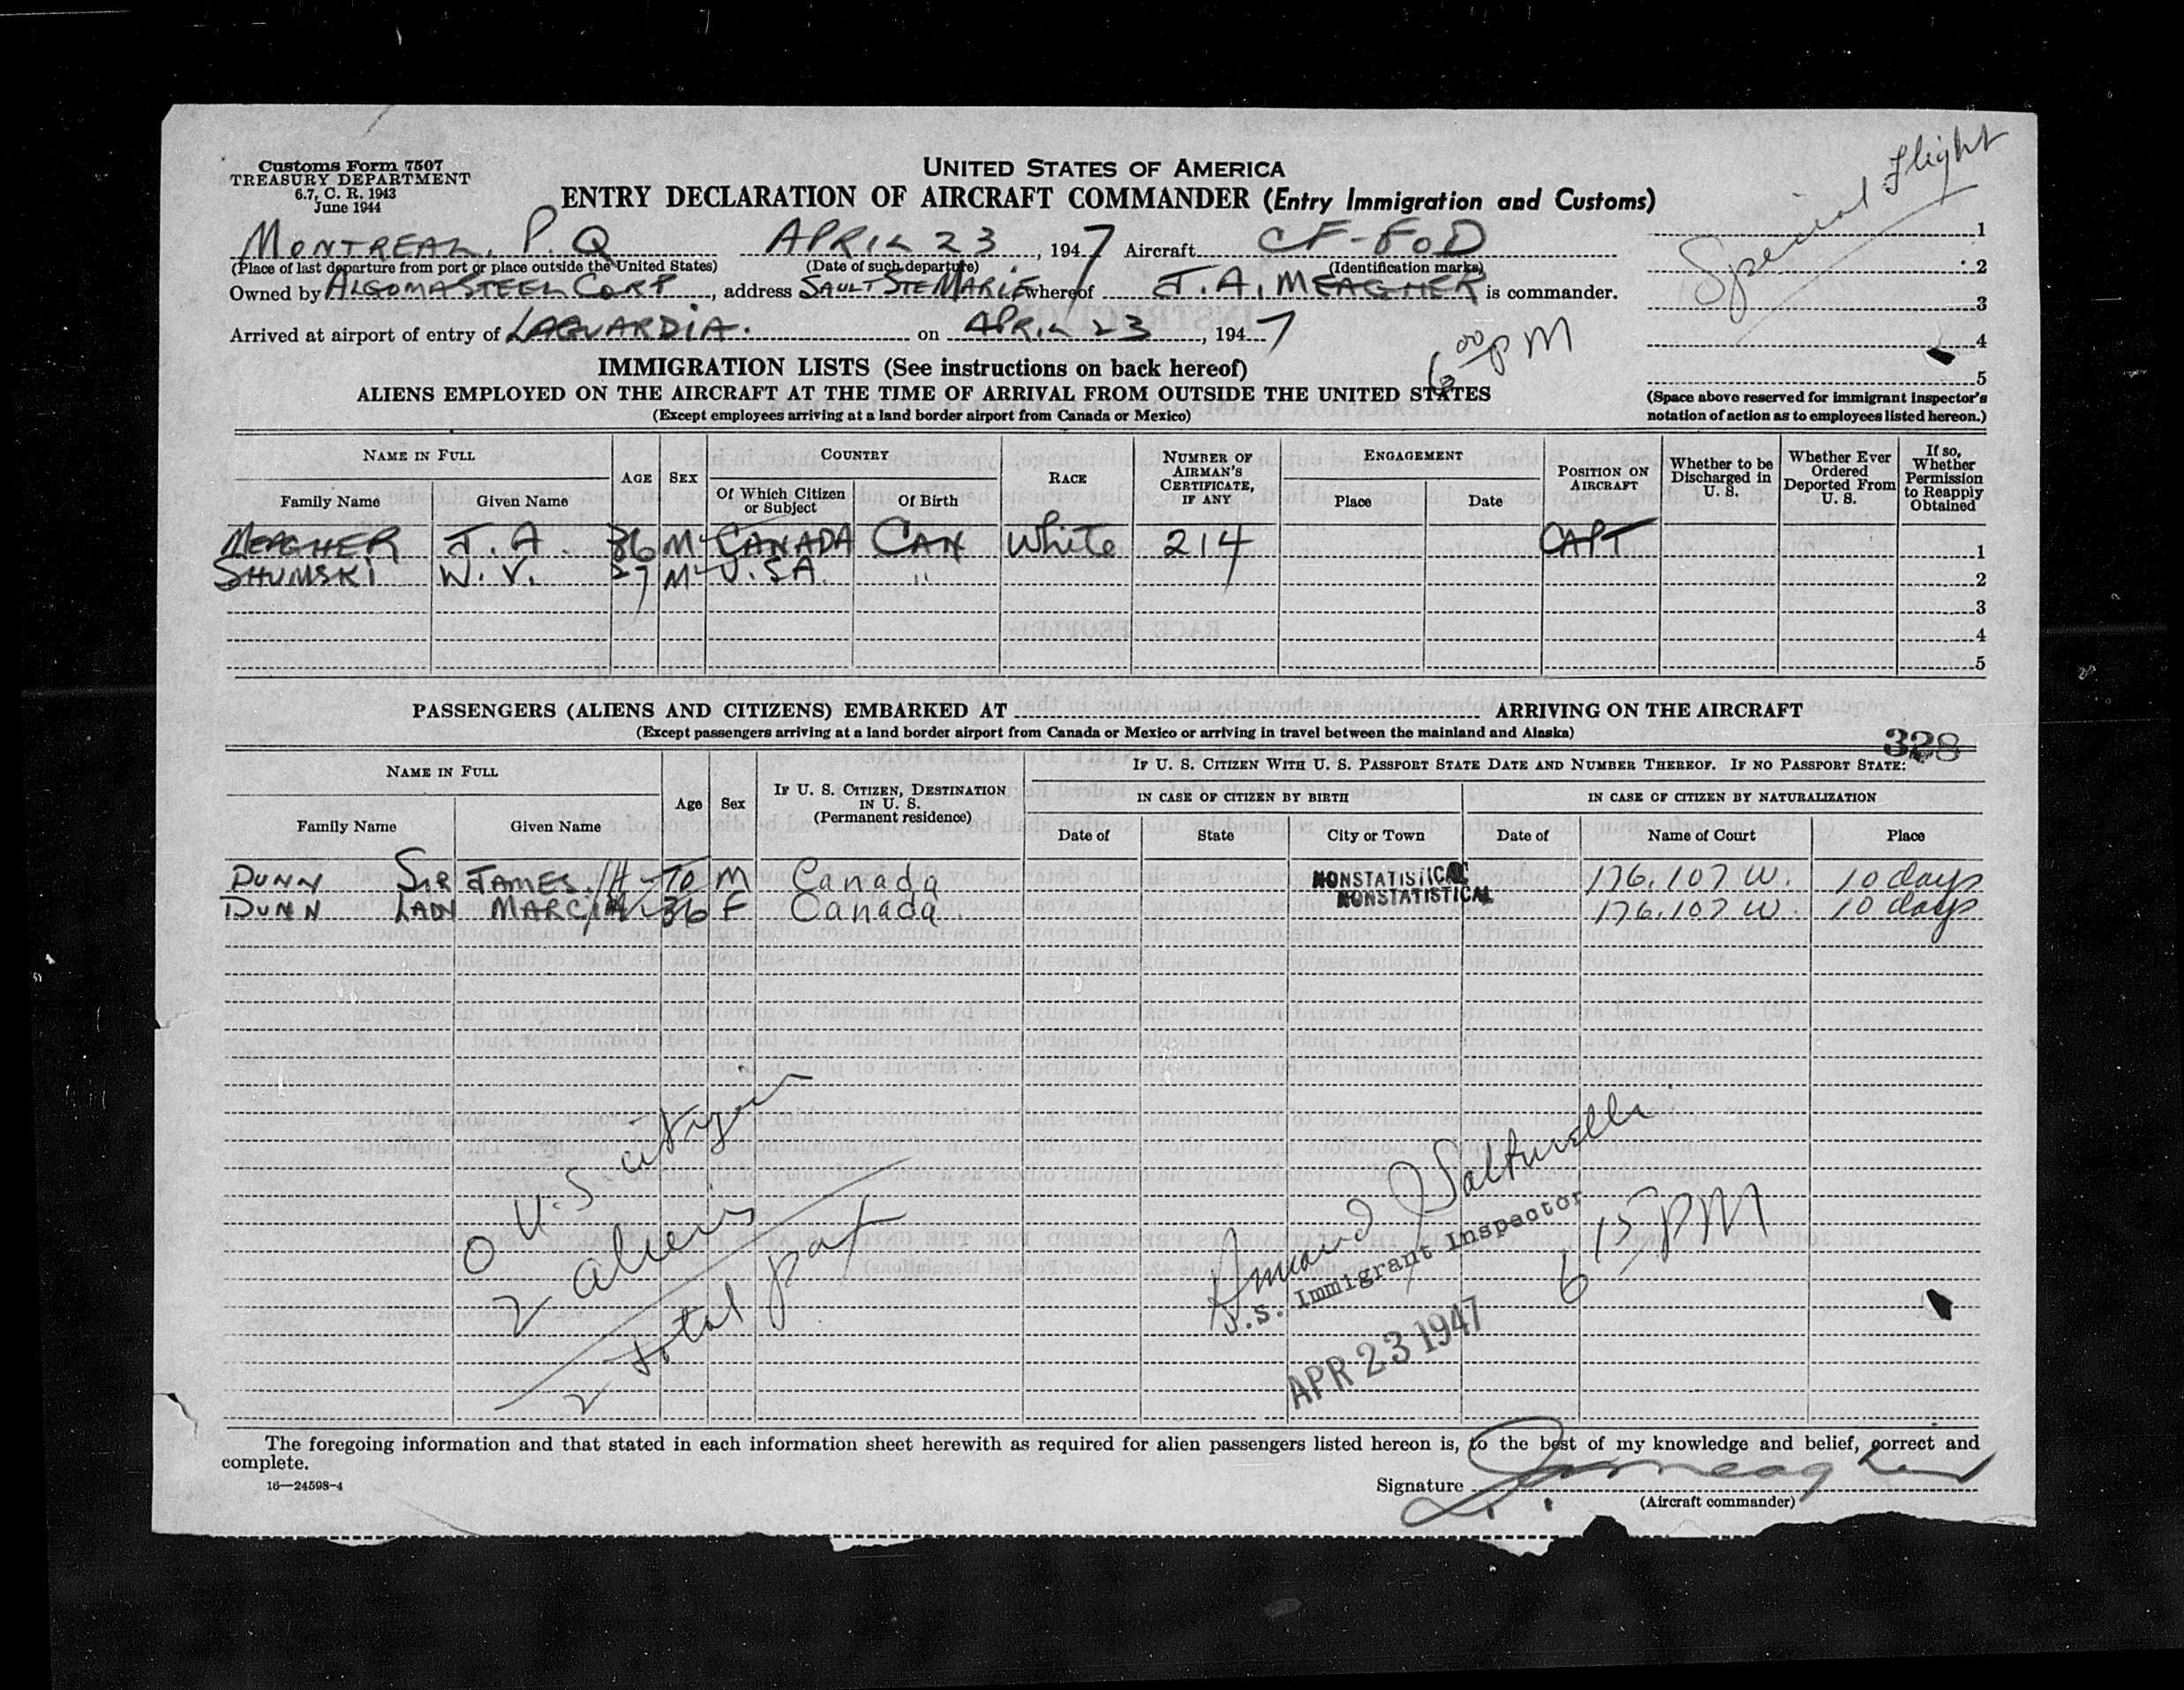 Customs Form 7507
TREASURY DEPARTMENT
6.7, C. R. 1943
June 1944
UNITED STATES OF AMERICA
ENTRY DECLARATION OF AIRCRAFT COMMANDER (Entry Immigration and Customs)
Special Flight
MONTREAL, P.Q APRIL 23, 1947 Aircraft CF-FOD
(Place of last departure from port or place outside the United States) (Date of such departure) (Identification marks)
Owned by ALGOMA STEEL CORP, address SAULT STE MARIE, whereof J.A. MEAGHER is commander.
Arrived at airport of entry of LAGUARDIA. on APRIL 23, 1947
6 00 PM
1
2
3
4
5
(Space above reserved for immigrant inspector's
notation of action as to employees listed hereon.)
IMMIGRATION LISTS (See instructions on back hereof)
ALIENS EMPLOYED ON THE AIRCRAFT AT THE TIME OF ARRIVAL FROM OUTSIDE THE UNITED STATES
(Except employees arriving at a land border airport from Canada or Mexico)
NAME IN FULL AGE SEX COUNTRY RACE NUMBER OF AIRMAN'S CERTIFICATE, IF ANY ENGAGEMENT POSITION ON AIRCRAFT Whether to be Discharged in U. S. Whether Ever Ordered Deported From U. S. If so, Whether Permission to Reapply Obtained
Family Name Given Name Of Which Citizen or Subject Of Birth Place Date
MEAGHER J. A. 36 M CANADA CAN White 214 CAPT 1
SHUMSKI W. V. 27 M U.S.A. " 2
3
4
5
PASSENGERS (ALIENS AND CITIZENS) EMBARKED AT ARRIVING ON THE AIRCRAFT
(Except passengers arriving at a land border airport from Canada or Mexico or arriving in travel between the mainland and Alaska)
328
NAME IN FULL Age Sex IF U. S. CITIZEN, DESTINATION IN U. S. (Permanent residence) IF U. S. CITIZEN WITH U. S. PASSPORT STATE DATE AND NUMBER THEREOF. IF NO PASSPORT STATE:
IN CASE OF CITIZEN BY BIRTH IN CASE OF CITIZEN BY NATURALIZATION
Family Name Given Name Date of State City or Town Date of Name of Court Place
DUNN SIR JAMES. H 70 M Canada NONSTATISTICAL 176.107 W. 10 days
DUNN LADY MARCIA 36 F Canada NONSTATISTICAL 176.107 W. 10 days
0 U.S citizen
2 aliens
2 total pax
U.S. Immigrant Inspector
6 15 PM
APR 23 1947
The foregoing information and that stated in each information sheet herewith as required for alien passengers listed hereon is, to the best of my knowledge and belief, correct and
complete.
16—24598-4
Signature J.A. Meagher
(Aircraft commander)